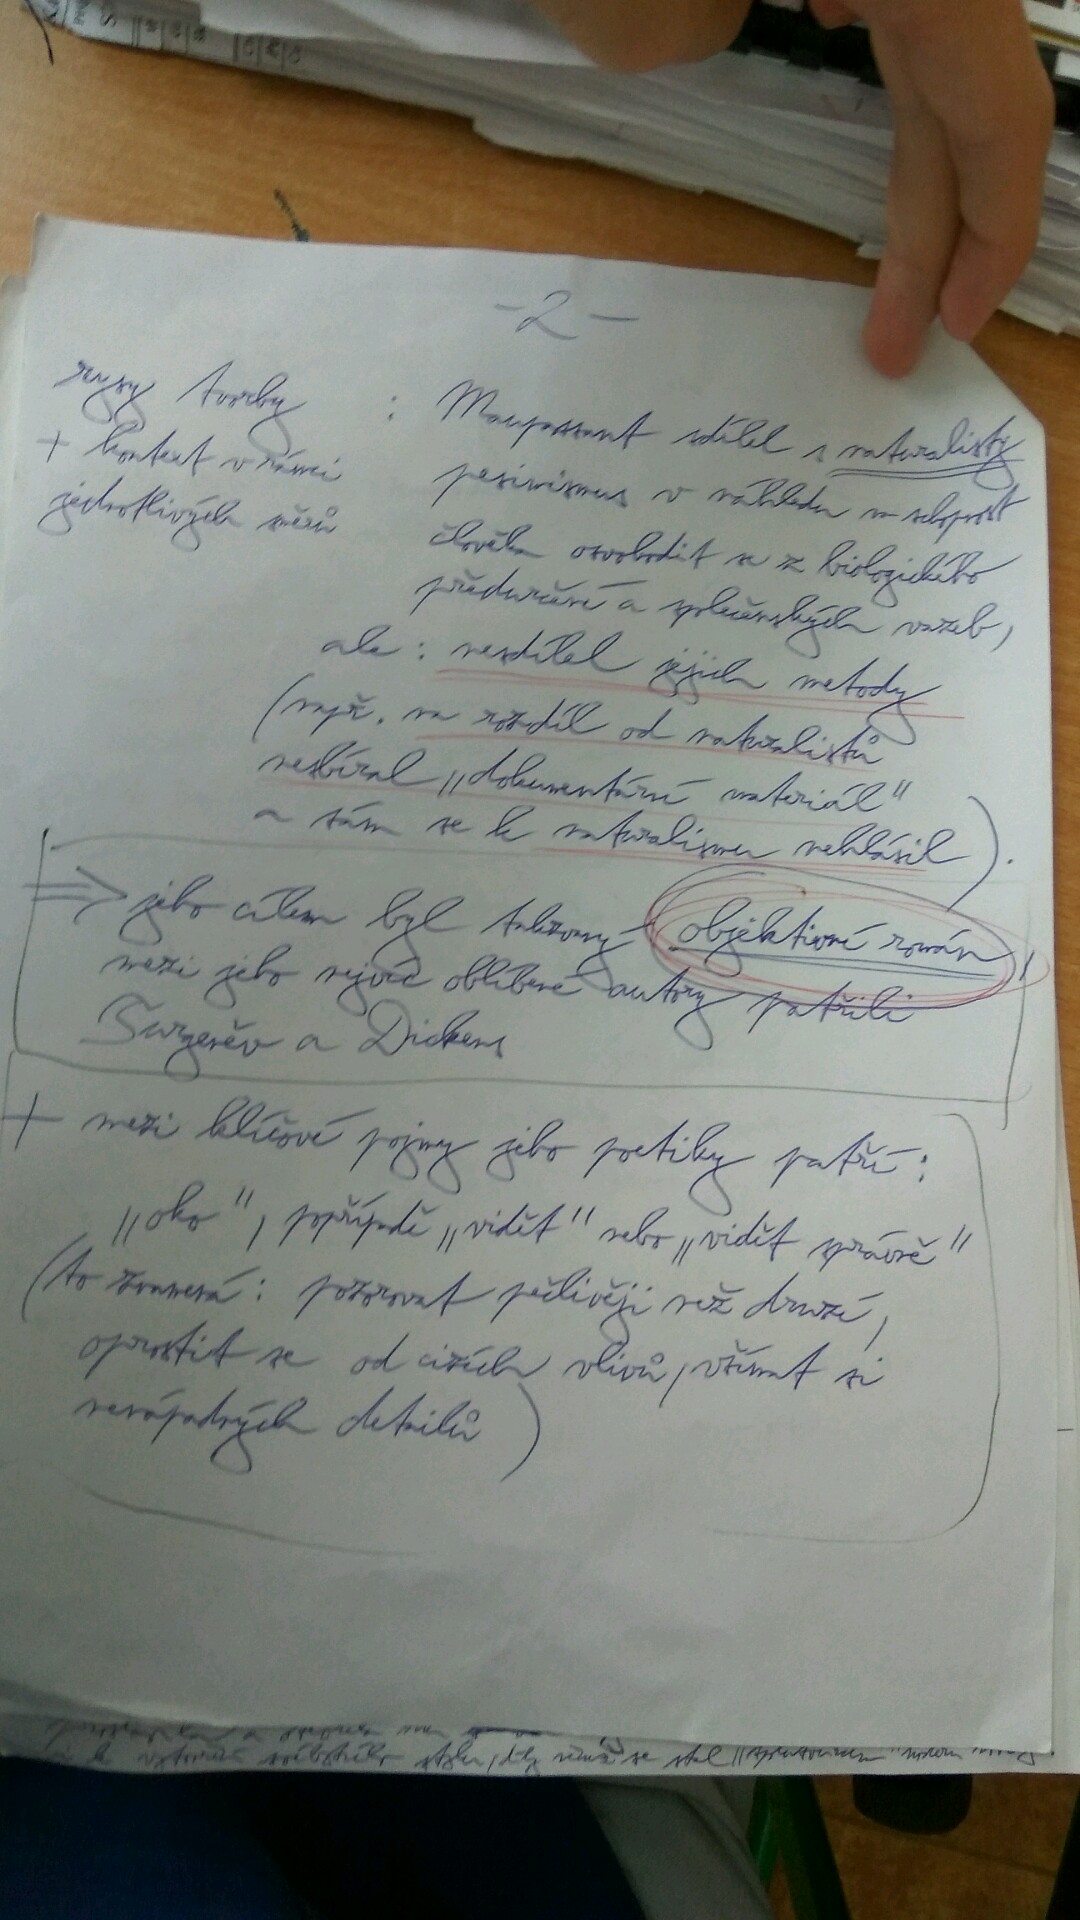 -2-
rysy tvorby : Maupassant sdílel s naturalisty
+ kontext v rámci pesimismus v náhledu na schopnost
jednotlivých směrů člověka osvobodit se z biologického
předurčení a společenských vazeb,
ale: nesdílel jejich metody
(např. na rozdíl od naturalistů
nesbíral „dokumentární materiál"
a sám se k naturalismu nehlásil).
=> jeho cílem byl takzvaný objektivní román,
mezi jeho nejvíc oblíbené autory patřili
Turgeněv a Dickens
+ mezi klíčové pojmy jeho poetiky patří:
„oko", popřípadě „vidět" nebo „vidět správně"
(to znamená: pozorovat pečlivěji než druzí,
oprostit se od cizích vlivů, všímat si
nenápadných detailů)
se stal